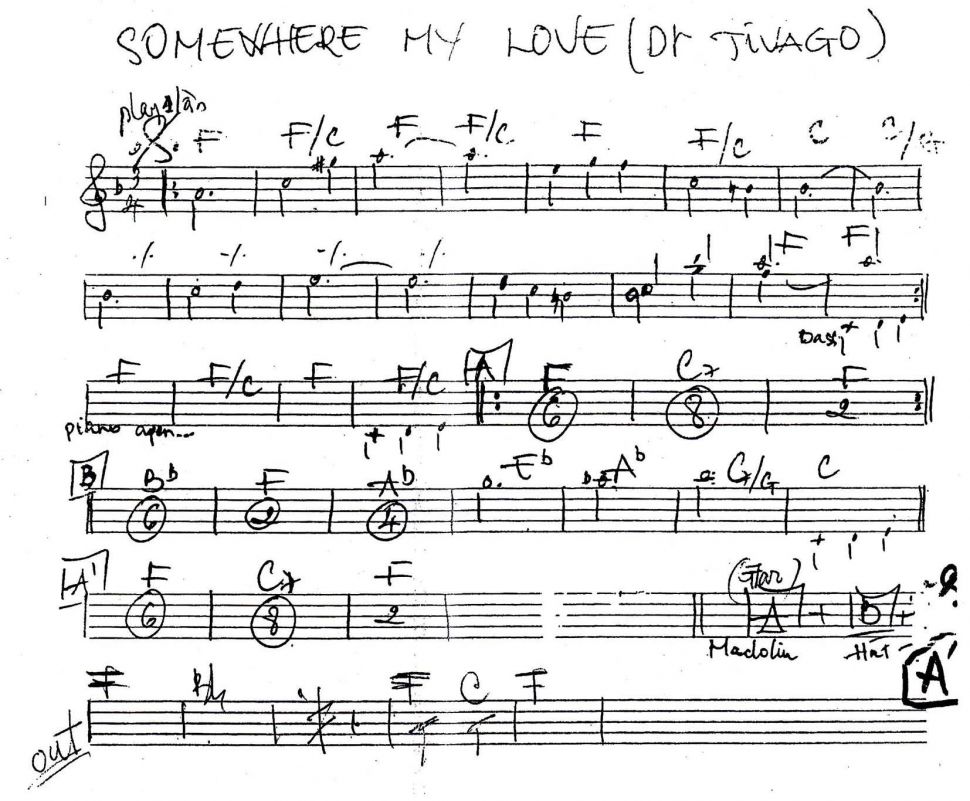 SOMEWHERE MY LOVE (Dr JIVAGO)
play 2 lần
F F/C F F/C F F/C C C/G
3
4
·/. ·/. ·/. ·/. F F
Bass
F F/C F F/C A F C7 F
6 8 2
piano open...
B Bb F Ab Eb Ab G7/G C
6 2 4
A' F C7 F (Gtar)
6 8 2 A + B +
Madolin Hát
A'
F F C F
out